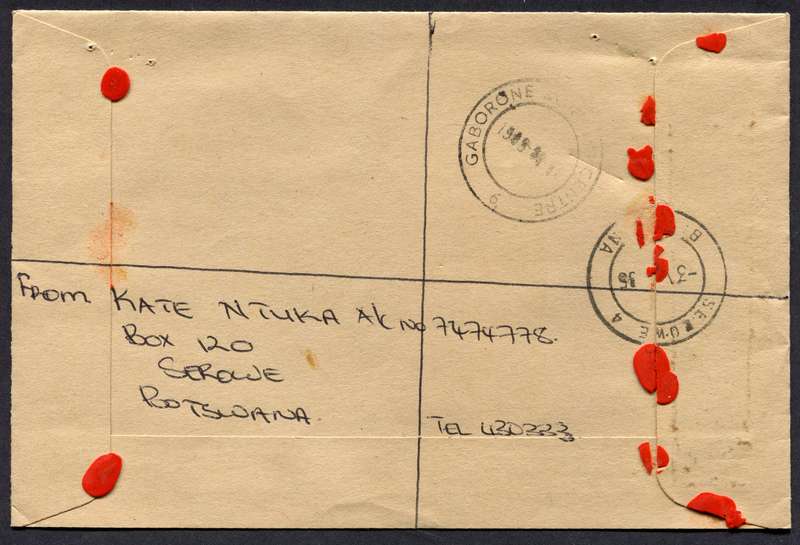 GABORONE CENTRE 9
SEROWE 4
-3
FROM KATE NTUKA A/C NO 7474778.
BOX 120
SEROWE
BOTSWANA.
TEL 430333